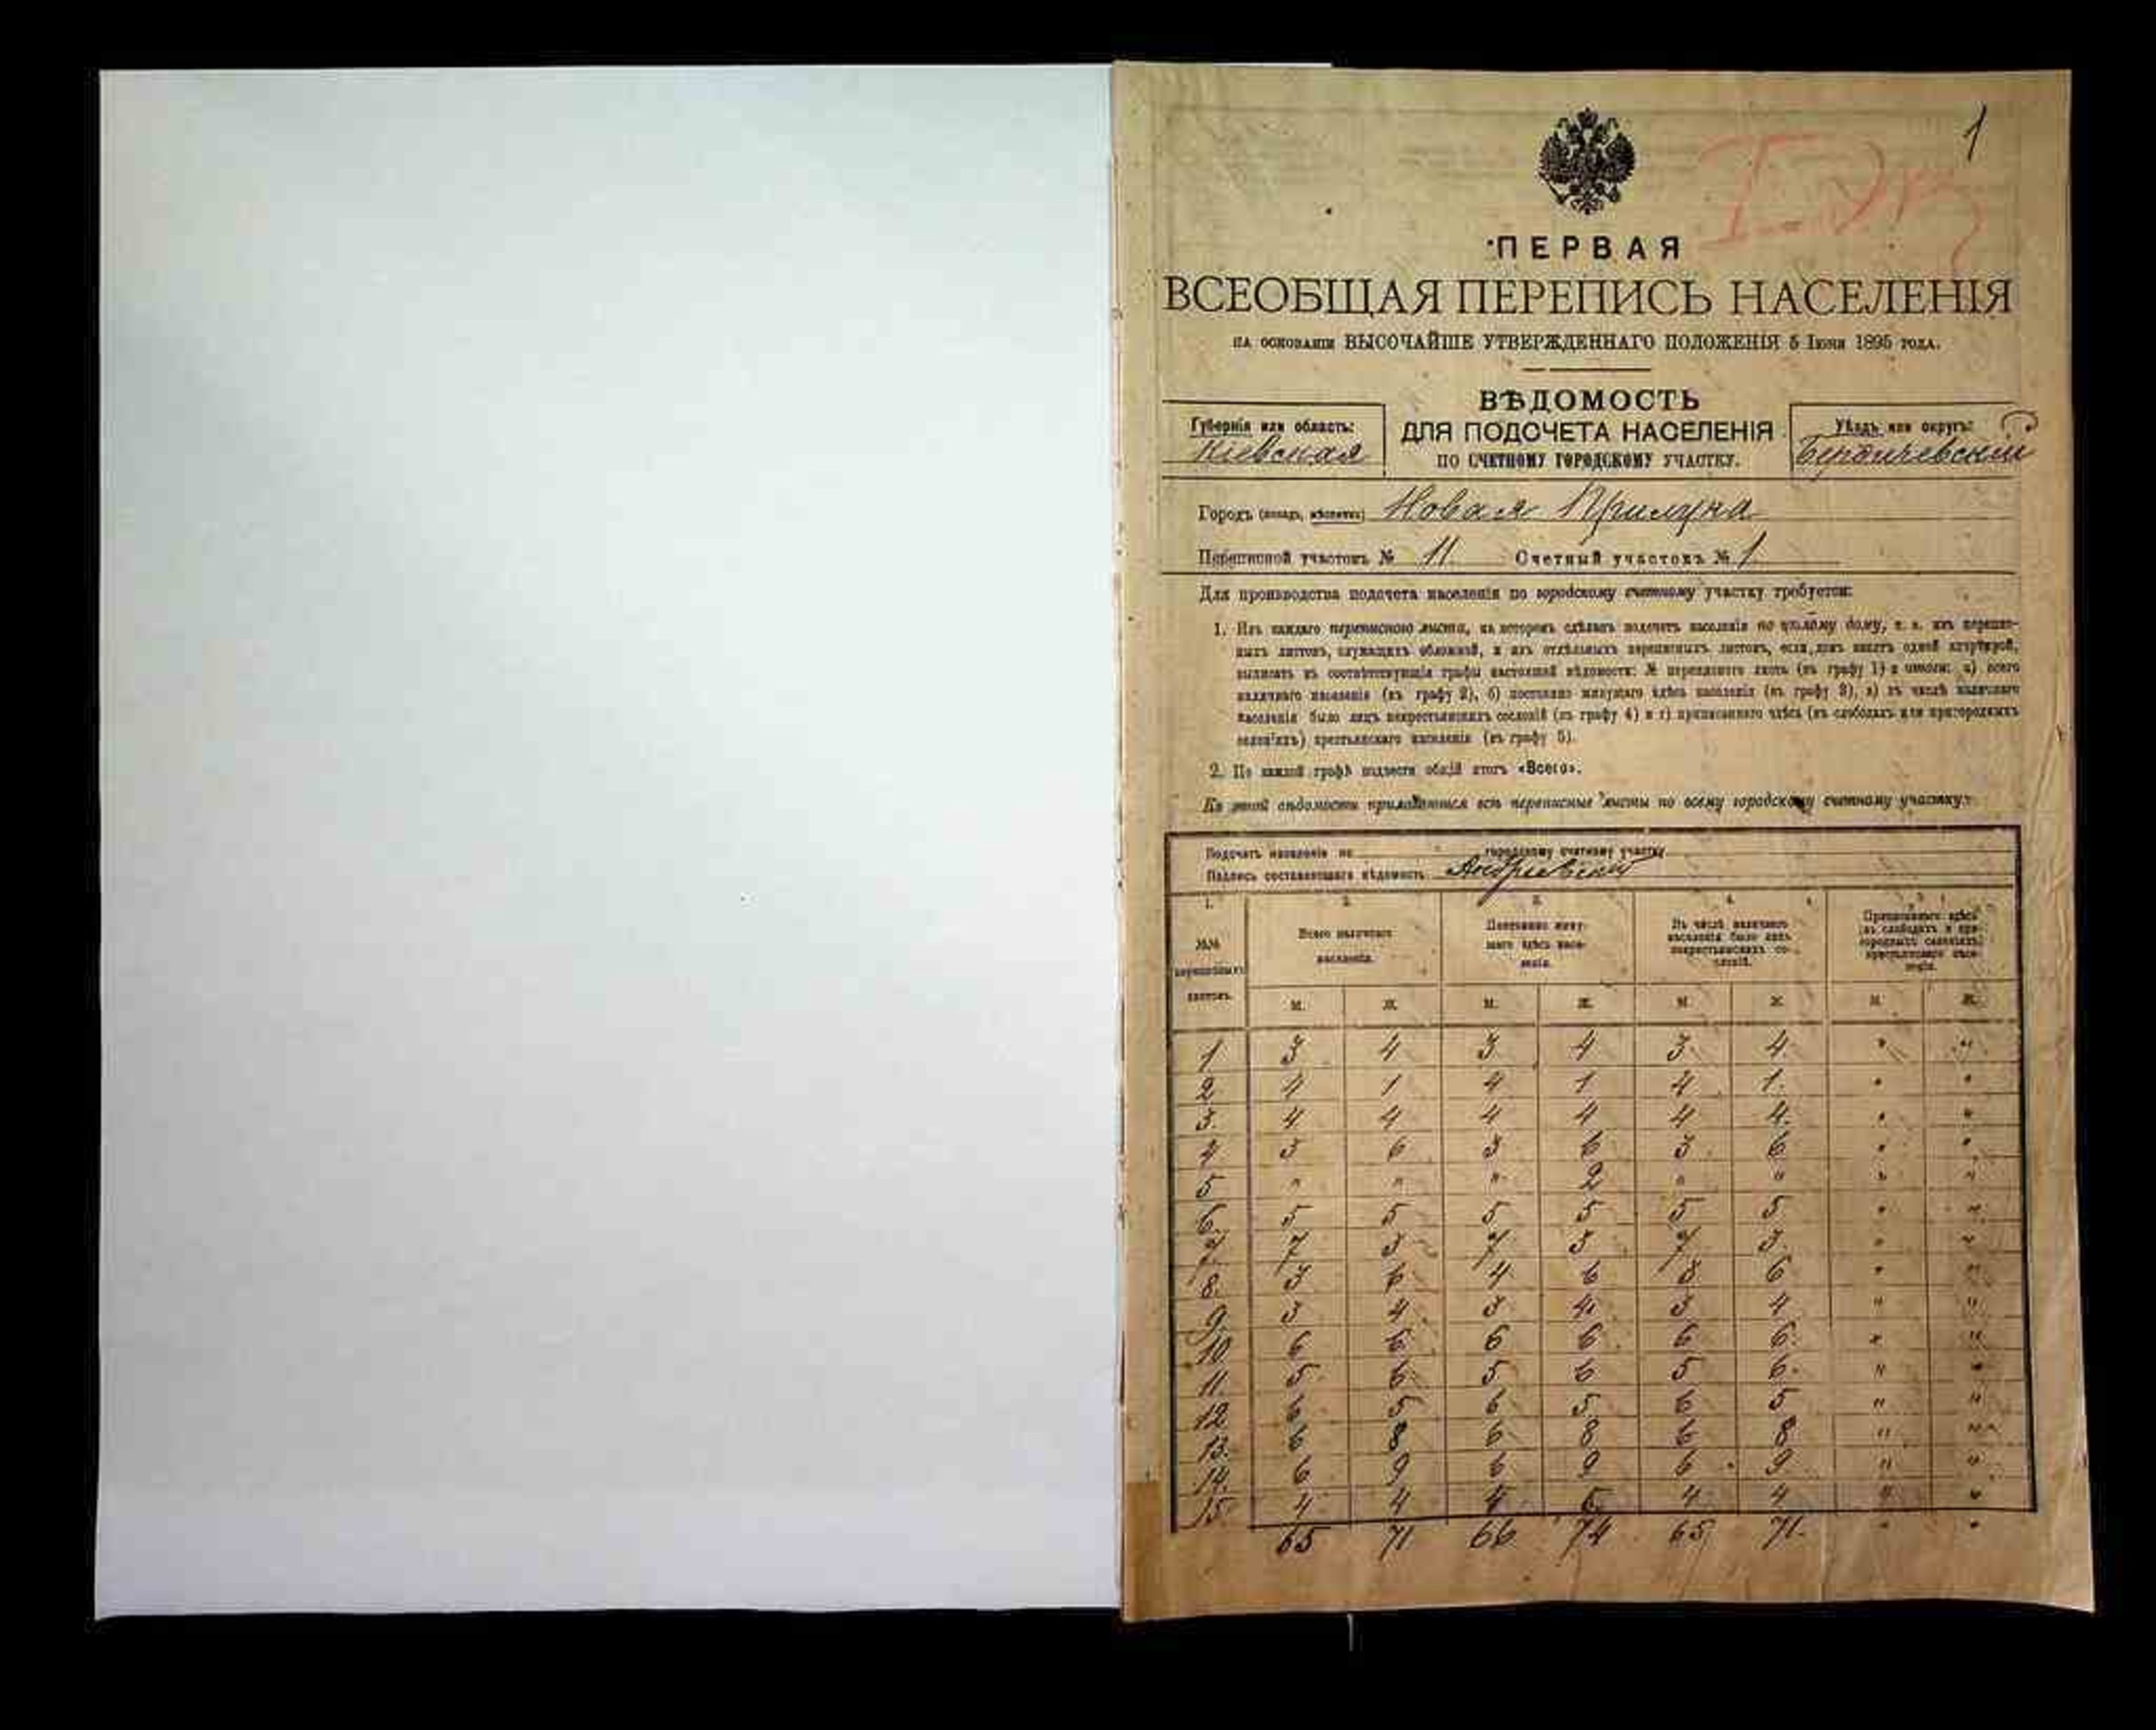 1
ПЕРВАЯ
ВСЕОБЩАЯ ПЕРЕПИСЬ НАСЕЛЕНІЯ
НА ОСНОВАНІИ ВЫСОЧАЙШЕ УТВЕРЖДЕННАГО ПОЛОЖЕНІЯ 5 Іюня 1895 ГОДА.
ВѢДОМОСТЬ
ДЛЯ ПОДСЧЕТА НАСЕЛЕНІЯ
ПО СЧЕТНОМУ ГОРОДСКОМУ УЧАСТКУ.
Губернія или область:
Кіевская
Уѣздъ или округъ:
Бердичевскій
Городъ (посадъ, мѣстечко) Новая Прилука
Переписной участокъ № 11 Счетный участокъ № 1
Для производства подсчета населенія по городскому счетному участку требуется:
1. Изъ каждаго переписного листа, на которомъ сдѣланъ подсчетъ населенія по цѣлому дому, т. е. изъ перепис-
ныхъ листовъ, служащихъ обложкой, и изъ отдѣльныхъ переписныхъ листовъ, если домъ занятъ одной квартирой,
выписать въ соотвѣтствующія графы настоящей вѣдомости: № переписного листа (въ графу 1) и числа: а) всего
наличнаго населенія (въ графу 2), б) постоянно живущаго здѣсь населенія (въ графу 3), в) въ числѣ наличнаго
населенія было лицъ некрестьянскихъ сословій (въ графу 4) и г) приписаннаго здѣсь (въ слободахъ или пригородныхъ
селеніяхъ) крестьянскаго населенія (въ графу 5).
2. По каждой графѣ подвести общій итогъ «Всего».
Къ этой вѣдомости прилагаются всѣ переписные листы по всему городскому счетному участку.
Подсчетъ населенія по городскому счетному участку
Подпись составлявшаго вѣдомость Андріевскій
1. 2. 3. 4. 5.
№№ переписныхъ листовъ.
Всего наличнаго населенія.
Постоянно живу-
щаго здѣсь насе-
ленія.
Въ числѣ наличнаго
населенія было лицъ
некрестьянскихъ со-
словій.
Приписаннаго здѣсь
въ слободахъ и при-
городныхъ селеніяхъ
крестьянскаго насе-
ленія.
М. Ж. М. Ж. М. Ж. М. Ж.
1 3 4 3 4 3 4 " "
2 4 1 4 1 4 1. " "
3. 4 4 4 4 4 4. " "
4 3 6 3 6 3 6 " "
5 " " " 2 " " " "
6. 5 5 5 5 5 5 " "
7. 7 3 7 3 7 3. " "
8. 3 6 4 6 3 6 " "
9. 3 4 3 4 3 4 " "
10 6 6 6 6 6 6. " "
11. 5 6 5 6 5 6. " "
12. 6 5 6 5 6 5 " "
13. 6 8 6 8 6 8 " "
14. 6 9 6 9 6 9 " "
15. 4 4 4 5 4 4 " "
65 71 66 74 65 71. " "